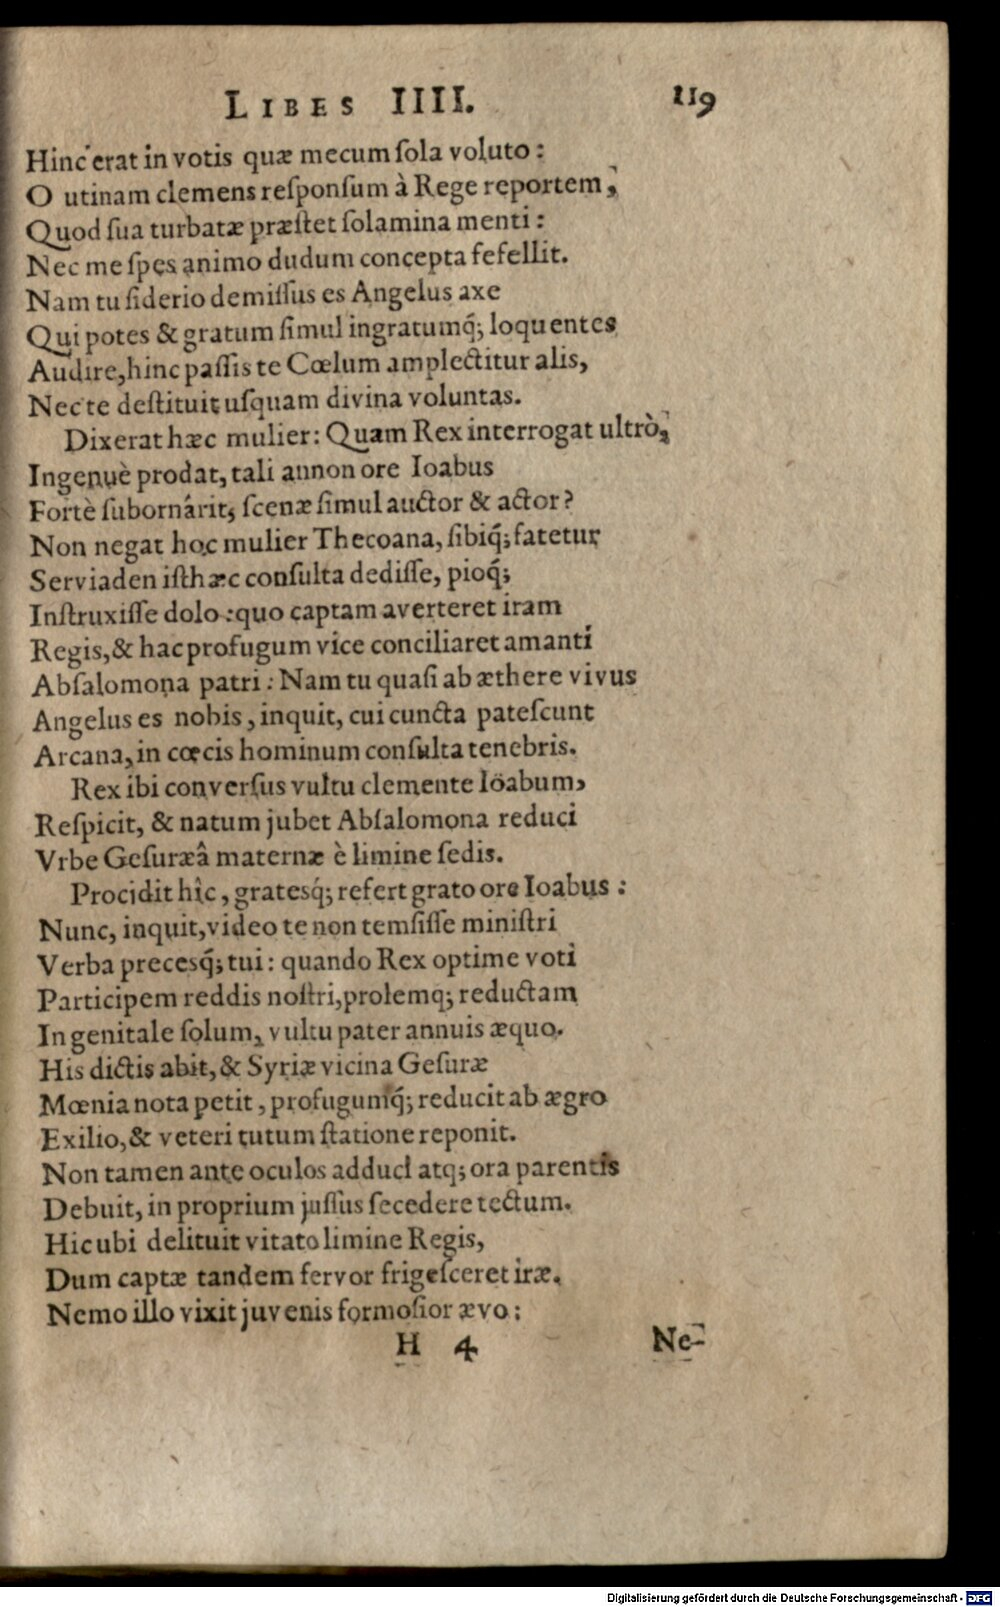 LIBES IIII. 119
Hinc erat in votis quæ mecum ſola voluto:
O utinam clemens reſponſum à Rege reportem,
Quod ſua turbatæ præſtet ſolamina menti:
Nec me ſpes animo dudum concepta fefellit.
Nam tu ſiderio demiſſus es Angelus axe
Qui potes & gratum ſimul ingratumq́; loquentes
Audire, hinc paſſis te Cœlum amplectitur alis,
Nec te deſtituit uſquam divina voluntas.
Dixerat hæc mulier: Quam Rex interrogat ultrò,
Ingenuè prodat, tali annon ore Ioabus
Fortè ſubornârit, ſcenæ ſimul auctor & actor?
Non negat hoc mulier Thecoana, ſibiq́; fatetur
Serviaden iſthæc conſulta dediſſe, pioq́;
Inſtruxiſſe dolo: quo captam averteret iram
Regis, & hac profugum vice conciliaret amanti
Abſalomona patri: Nam tu quaſi ab æthere vivus
Angelus es nobis, inquit, cui cuncta pateſcunt
Arcana, in cœcis hominum conſulta tenebris.
Rex ibi converſus vultu clemente Ioabum,
Reſpicit, & natum jubet Abſalomona reduci
Vrbe Geſuræâ maternæ è limine ſedis.
Procidit hîc, gratesq́; refert grato ore Ioabus:
Nunc, inquit, video te non temſiſſe miniſtri
Verba precesq́; tui: quando Rex optime voti
Participem reddis noſtri, prolemq; reductam
In genitale ſolum, vultu pater annuis æquo.
His dictis abit, & Syriæ vicina Geſuræ
Mœnia nota petit, profugumq́; reducit ab ægro
Exilio, & veteri tutum ſtatione reponit.
Non tamen ante oculos adduci atq; ora parentis
Debuit, in proprium juſſus ſecedere tectum.
Hic ubi delituit vitato limine Regis,
Dum captæ tandem fervor frigeſceret iræ.
Nemo illo vixit juvenis formoſior ævo:
H 4 Ne-
Digitalisierung gefördert durch die Deutsche Forschungsgemeinschaft - DFG